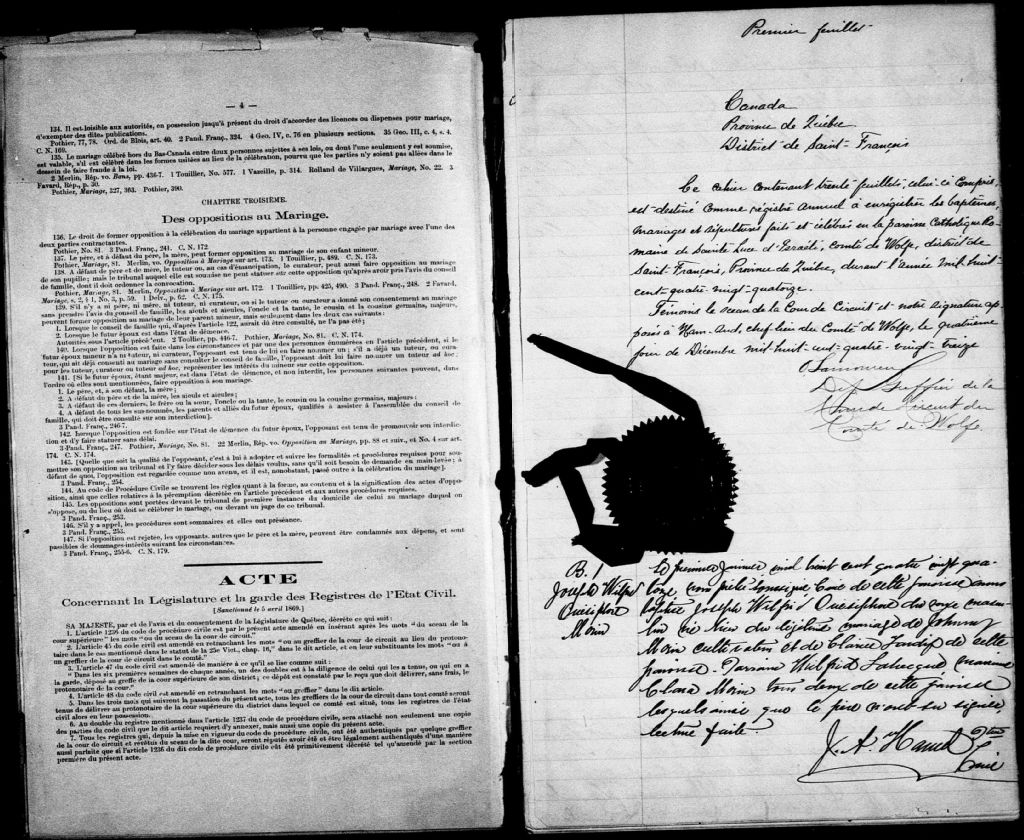 — 4 —
134. Il est loisible aux autorités, en possession jusqu'à présent du droit d'accorder des licences ou dispenses pour mariage,
d'exempter des dites publications.
Pothier, 77, 78. Ord. de Blois, art. 40. 2 Pand. Franç., 324. 4 Geo. IV, c. 76 en plusieurs sections. 35 Geo. III, c. 4, s. 4.
C. N. 169.
135. Le mariage célébré hors du Bas-Canada entre deux personnes sujettes à ses lois, ou dont l'une seulement y est soumise,
est valable, s'il est célébré dans les formes usitées au lieu de la célébration, pourvu que les parties n'y soient pas allées dans le
dessein de faire fraude à la loi.
2 Merlin, Rép. vo. Bans, pp. 436-7. 1 Touillier, No. 577. 1 Vazeille, p. 314. Rolland de Villargues, Mariage, No. 22. 3
Favard, Rép., p. 30.
Pothier, Mariage, 327, 363. Pothier, 390.
CHAPITRE TROISIÈME.
Des oppositions au Mariage.
136. Le droit de former opposition à la célébration du mariage appartient à la personne engagée par mariage avec l'une des
deux parties contractantes.
Pothier, No. 81. 3 Pand. Franç., 241. C. N. 172.
137. Le père, et à défaut du père, la mère, peut former opposition au mariage de son enfant mineur.
Pothier, Mariage, 81. Merlin, vo. Opposition à Mariage sur art. 173. 1 Toullier, p. 489. C. N. 173.
138. A défaut de père et de mère, le tuteur ou, au cas d'émancipation, le curateur, peut aussi faire opposition au mariage
de son pupille; mais le tribunal auquel elle est soumise ne peut statuer sur cette opposition qu'après avoir pris l'avis du conseil
de famille, dont il doit ordonner la convocation.
Pothier, Mariage, 81. Merlin, Opposition à Mariage sur art. 172. 1 Touillier, pp. 425, 490. 3 Pand. Franç., 248. 2 Favard,
Mariage, s. 2, § 1, No. 3, p. 59. 1 Delv., p. 62. C. N. 175.
139. S'il n'y a ni père, ni mère, ni tuteur, ni curateur, ou si le tuteur ou curateur a donné son consentement au mariage
sans prendre l'avis du conseil de famille, les aïeuls et aïeules, l'oncle et la tante, le cousin et la cousine germains, majeurs,
peuvent former opposition au mariage de leur parent mineur, mais seulement dans les deux cas suivants:
1. Lorsque le conseil de famille qui, d'après l'article 122, aurait dû être consulté, ne l'a pas été;
2. Lorsque le futur époux est dans l'état de démence.
Autorités sous l'article précédent. 2 Toullier, pp. 446-7. Pothier, Mariage, No. 81. C. N. 174.
140. Lorsque l'opposition est faite dans les circonstances et par une des personnes énumérées en l'article précédent, si le
futur époux mineur n'a ni tuteur, ni curateur, l'opposant est tenu de lui en faire nommer un; s'il a déjà un tuteur, ou curateur,
qui ait déjà consenti au mariage sans consulter le conseil de famille, l'opposant doit lui faire nommer un tuteur ad hoc;
pour les tuteur, curateur ou tuteur ad hoc, représenter les intérêts du mineur sur cette opposition.
141. [Si le futur époux, étant majeur, est dans l'état de démence, et non interdit, les personnes suivantes peuvent, dans
l'ordre où elles sont mentionnées, faire opposition à son mariage.
1. Le père, et, à son défaut, la mère;
2. A défaut du père et de la mère, les aïeuls et aïeules;
3. A défaut de ces derniers, le frère ou la sœur, l'oncle ou la tante, le cousin ou la cousine germains, majeurs;
4. A défaut de tous les sus-nommés, les parents et alliés du futur époux, qualifiés à assister à l'assemblée du conseil de
famille, qui doit être consulté sur son interdiction].
3 Pand. Franç., 246-7.
142. Lorsque l'opposition est fondée sur l'état de démence du futur époux, l'opposant est tenu de promouvoir son interdiction
et d'y faire statuer sans délai.
3 Pand. Franç., 247. Pothier, Mariage, No. 81. 22 Merlin, Rép. vo. Opposition au Mariage, pp. 88 et suiv., et No. 4 sur art.
174. C. N. 174.
143. [Quelle que soit la qualité de l'opposant, c'est à lui à adopter et suivre les formalités et procédures requises pour soumettre
son opposition au tribunal et l'y faire décider sous les délais voulus, sans qu'il soit besoin de demande en main-levée; à
défaut de quoi, l'opposition est regardée comme non avenue, et il est, nonobstant, passé outre à la célébration du mariage].
3 Pand. Franç., 254.
144. Au code de Procédure Civile se trouvent les règles quant à la forme, au contenu et à la signification des actes d'opposition,
ainsi que celles relatives à la péremption décrétée en l'article précédent et aux autres procédures requises.
145. Les oppositions sont portées devant le tribunal de première instance du domicile de celui au mariage duquel on
s'oppose, ou du lieu où doit se célébrer le mariage, ou devant un juge de ce tribunal.
3 Pand. Franç., 253.
146. S'il y a appel, les procédures sont sommaires et elles ont préséance.
3 Pand. Franç., 253.
147. Si l'opposition est rejetée, les opposants, autres que le père et la mère, peuvent être condamnés aux dépens, et sont
passibles de dommages-intérêts suivant les circonstances.
3 Pand. Franç., 255-6. C. N. 179.
ACTE
Concernant la Législature et la garde des Registres de l'Etat Civil.
[Sanctionné le 5 avril 1869.]
SA MAJESTE, par et de l'avis et du consentement de la Législature de Québec, décrète ce qui suit:
1. L'article 1236 du code de procédure civile est par le présent acte amendé en insérant après les mots "du sceau de la
cour supérieure" les mots "ou du sceau de la cour de circuit."
2. L'article 45 du code civil est amendé en retranchant les mots "ou au greffier de la cour de circuit au lieu du protonotaire
dans le cas mentionné dans le statut de la 25e Vict., chap. 16," dans le dit article, et en leur substituants les mots "ou à
un greffier de la cour de circuit dans le comté."
3. L'article 47 du code civil est amendé de manière à ce qu'il se lise comme suit:
"Dans les six premières semaines de chaque année, un des doubles est à la diligence de celui qui les a tenus, ou qui en a
la garde, déposé au greffe de la cour supérieure de son district; ce dépôt est constaté par le reçu que doit délivrer, sans frais, le
protonotaire de la cour."
4. L'article 48 du code civil est amendé en retranchant les mots "ou greffier" dans le dit article.
5. Dans les trois mois qui suivront la passation du présent acte, tous les greffiers de la cour de circuit dans tout comté seront
tenus de délivrer au protonotaire de la cour supérieure du district dans lequel ce comté est situé, tous les registres de l'état
civil alors en leur possession.
6. Au double du registre mentionné dans l'article 1237 du code de procédure civile, sera attaché non seulement une copie
des parties du code civil que le dit article requiert d'y annexer, mais aussi une copie du présent acte.
7. Tous les registres qui, depuis la mise en vigueur du code de procédure civile, ont été authentiqués par quelque greffier
de la cour de circuit et revêtus du sceau de la dite cour, seront réputés avoir été et être légalement authentiqués d'une manière
aussi parfaite que si l'article 1236 du dit code de procédure civile eût été primitivement décrété tel qu'amendé par la section
première du présent acte.
Premier feuillet
Canada
Province de Québec
District de Saint-François
Ce cahier contenant trente feuillets, celui-ci compris,
est destiné comme régistre annuel à enregistrer les baptêmes,
mariages et sépultures faits et célébrés en la paroisse Catholique Romaine
de Sainte Luce d'Israëli, comté de Wolfe, district de
Saint-François, Province de Québec, durant l'année mil-huit-
cent-quatre-vingt-quatorze.
Témoins le sceau de la Cour de Circuit et notre signature apposés
à Ham-Sud, chef-lieu du Comté de Wolfe, le quatrième
jour de Décembre mil-huit-cent-quatre-vingt-treize
Dep Greffier de la
Cour de Circuit du
Comté de Wolfe.
B. 1
Joseph Wilfrid
Morin
Le premier janvier mil huit cent quatre vingt quatorze,
nous prêtre soussigné Curé de cette paroisse avons
baptisé Joseph Wilfrid
né du légitime mariage de Johnny
Morin cultivateur et de de cette
paroisse. Parrain Wilfrid marraine
Clara Morin tous deux de cette paroisse
lesquels ainsi que le père n'ont su signer,
lecture faite.
J. A. Hamel Ptre
Curé